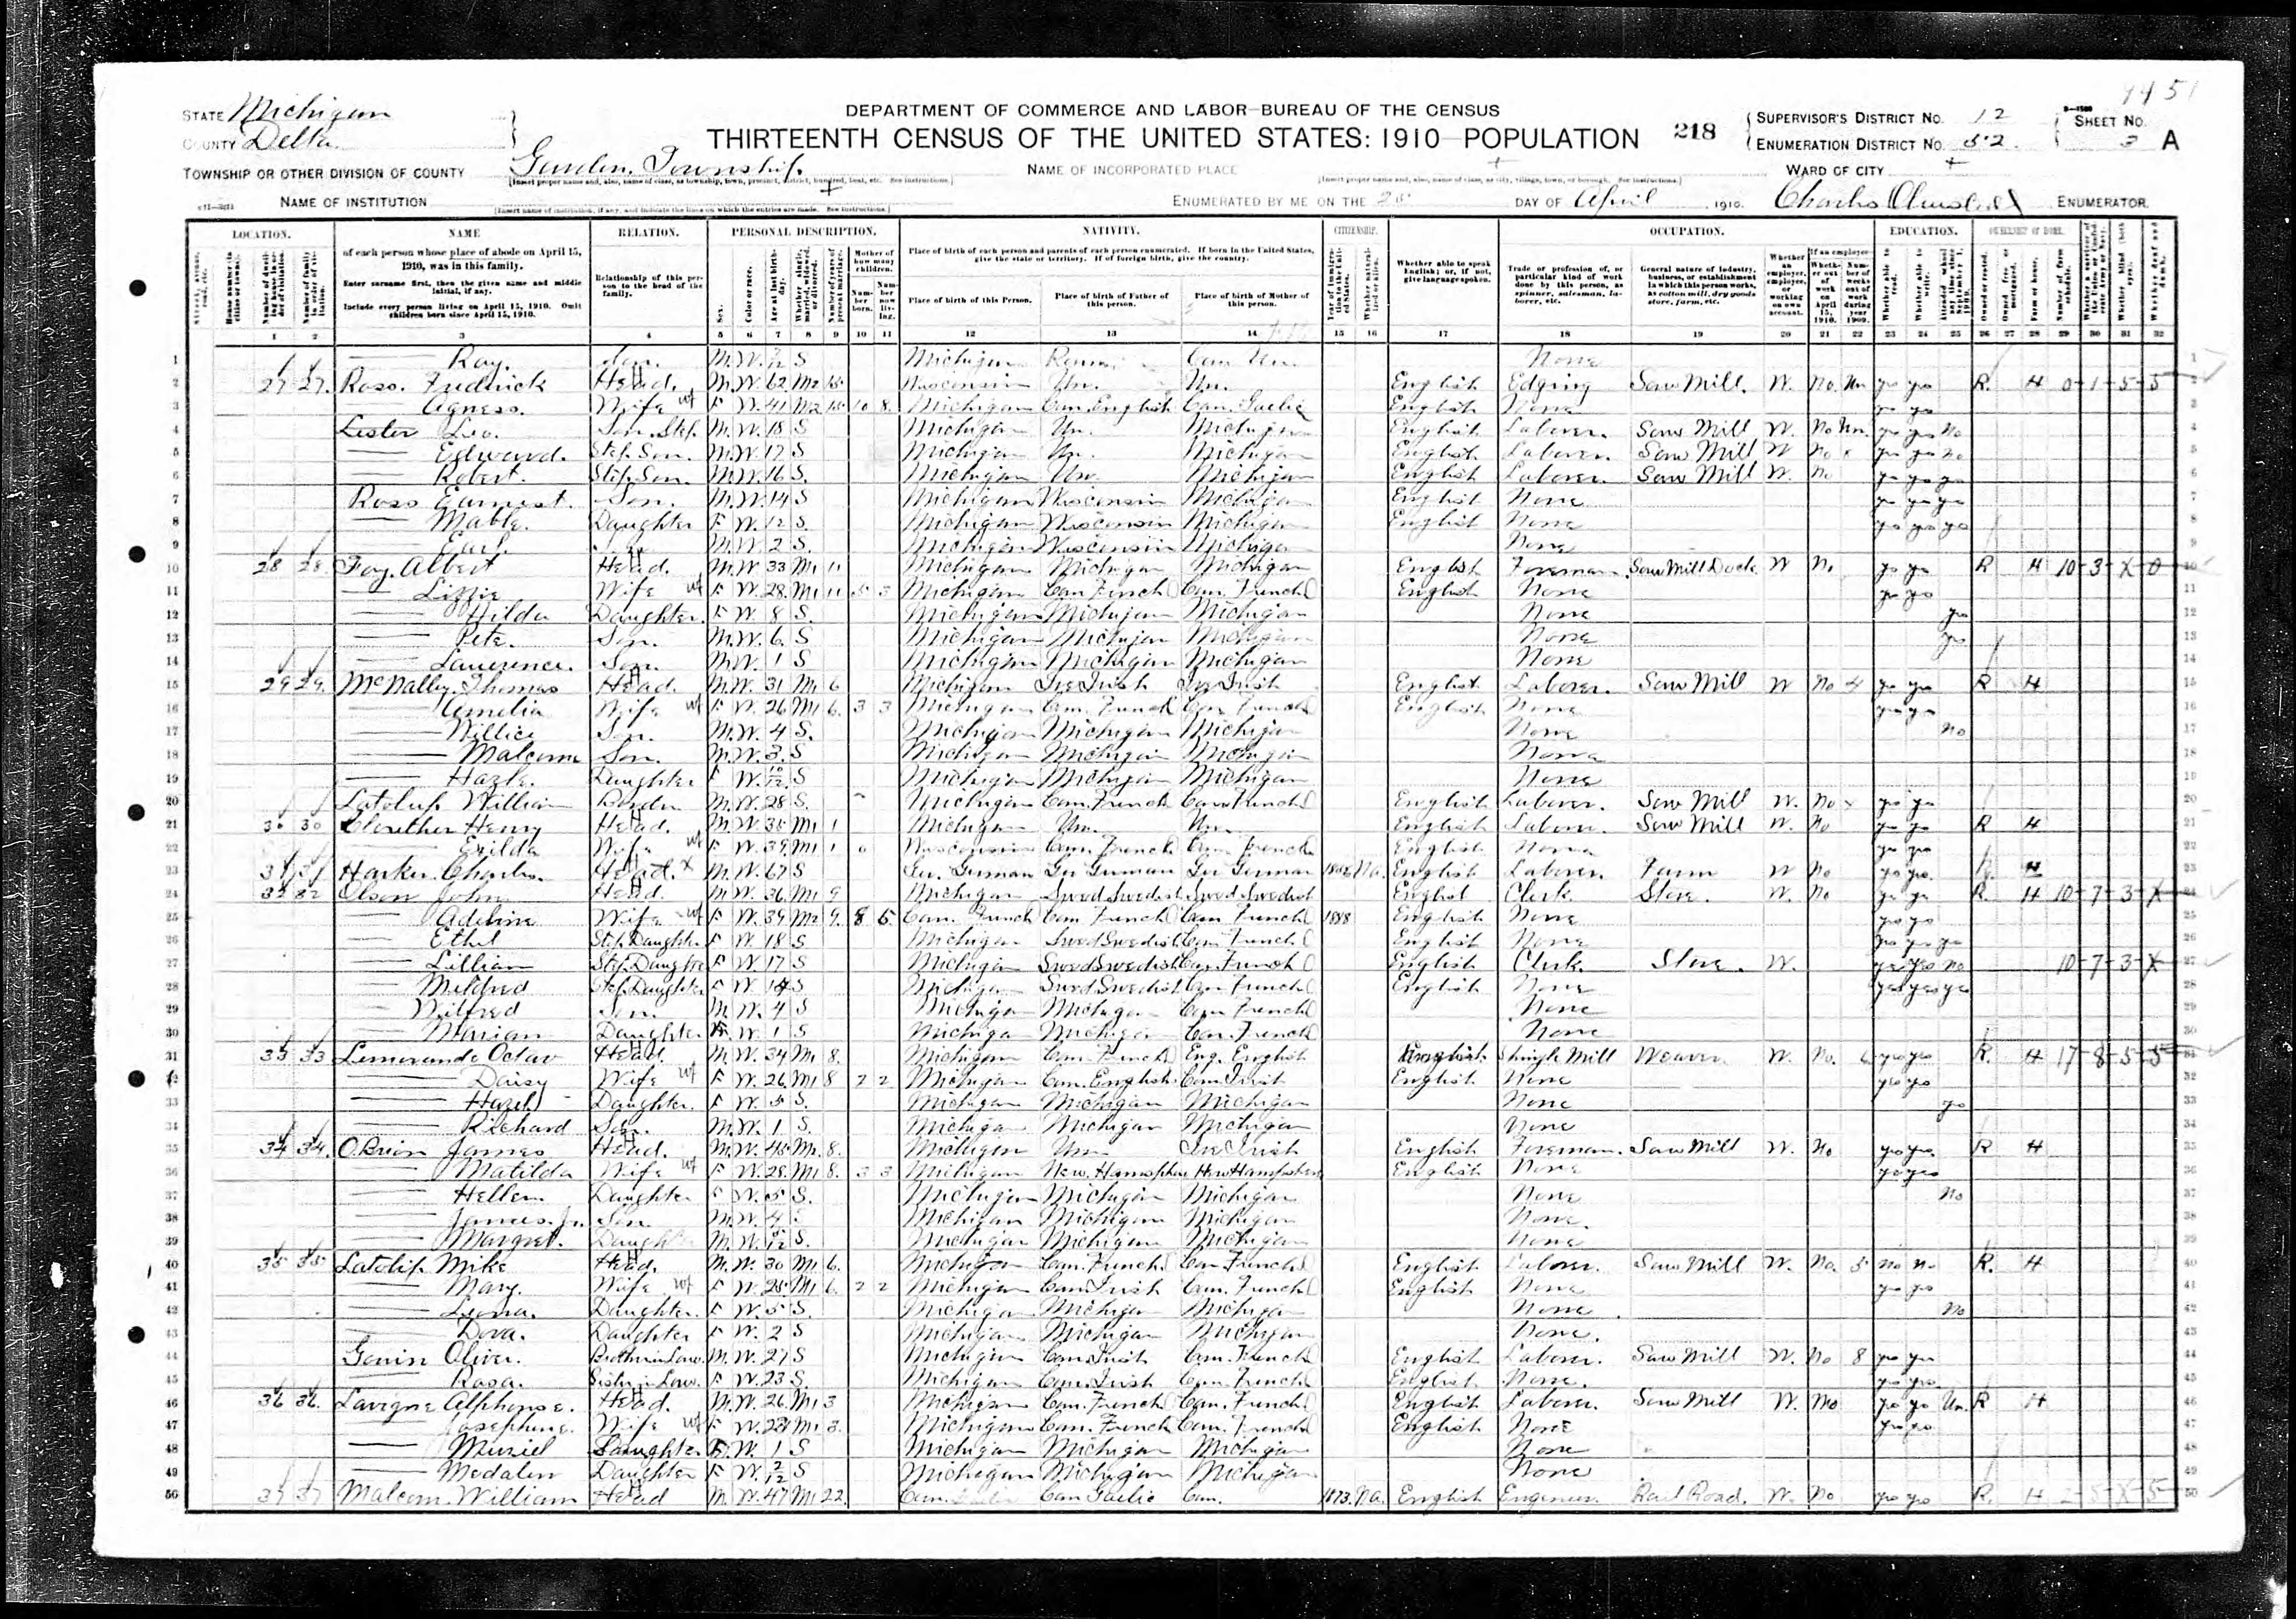 1451
STATE Michigan
COUNTY Delta
TOWNSHIP OR OTHER DIVISION OF COUNTY Garden Township
DEPARTMENT OF COMMERCE AND LABOR—BUREAU OF THE CENSUS
THIRTEENTH CENSUS OF THE UNITED STATES: 1910—POPULATION
218
SUPERVISOR'S DISTRICT NO. 12
ENUMERATION DISTRICT NO. 52
SHEET NO. 3 A
NAME OF INCORPORATED PLACE
WARD OF CITY
NAME OF INSTITUTION
ENUMERATED BY ME ON THE DAY OF April, 1910. Charles ENUMERATOR.
LOCATION. NAME RELATION. PERSONAL DESCRIPTION. NATIVITY. CITIZENSHIP. OCCUPATION. EDUCATION. OWNERSHIP OF HOME.
of each person whose place of abode on April 15, 1910, was in this family.
Enter surname first, then the given name and middle initial, if any.
Include every person living on April 15, 1910. Omit children born since April 15, 1910.
Relationship of this person to the head of the family.
Place of birth of each person and parents of each person enumerated. If born in the United States, give the state or territory. If of foreign birth, give the country.
Place of birth of this Person. Place of birth of Father of this person. Place of birth of Mother of this person.
Whether able to speak English; or, if not, give language spoken.
Trade or profession of, or particular kind of work done by this person, as spinner, salesman, laborer, etc.
General nature of industry, business, or establishment in which this person works, as cotton mill, dry goods store, farm, etc.
1 2 3 4 5 6 7 8 9 10 11 12 13 14 15 16 17 18 19 20 21 22 23 24 25 26 27 28 29 30 31 32
1 Ray. Son. M. W. S Michigan None
2 27 27 Ross. Fredrick Head. M. W. 62 M2 15 Wisconsin Un. Un. English Edging Saw Mill. W. No. Un yes yes R. H 0-1-5-5
3 Agness. Wife F W. 41 M2 15 10 8 Michigan Can English Can. Gaelic English None yes yes
4 Lester Leo. Son. Step. M. W. 18 S Michigan Un. Michigan English Laborer. Saw Mill W. No Un. yes yes No
5 Edward. Step. Son. M. W. 17 S Michigan Un. Michigan English Laborer. Saw Mill W No yes yes no
6 Robert. Step. Son. M. W. 16 S. Michigan Un. Michigan English Laborer. Saw Mill W. No yes yes yes
7 Ross Earnest. Son. M. W. 14 S. Michigan Wisconsin Michigan English None yes yes yes
8 Mable. Daughter F W. 12 S. Michigan Wisconsin Michigan English None yes yes yes
9 Earl. Son M. W. 2 S. Michigan Wisconsin Michigan None
10 28 28 Foy. Albert Head. M. W 33 M1 11 Michigan Michigan Michigan English Foreman. Saw Mill Dock W No yes yes R H 10-3-X-0
11 Lizzie Wife F W. 28. M1 11 5 3 Michigan Can French Can. French English None yes yes
12 Hilda Daughter. F W. 8 S. Michigan Michigan Michigan None yes
13 Pete. Son. M. W. 6. S Michigan Michigan Michigan None yes
14 Lawerence. Son. M. W. 1 S Michigan Michigan Michigan None
15 29 29. McNally. Thomas Head. M. W. 31 M1 6 Michigan Ire Irish Ire Irish English Laborer. Saw Mill W No 4 yes yes R H
16 Amelia Wife F W. 26 M1 6. 3 3 Michigan Can. French Can French English None yes yes
17 Willie Son. M. W. 4 S. Michigan Michigan Michigan None No
18 Malcome Son. M. W. 3. S Michigan Michigan Michigan None
19 Hazle. Daughter F W. 10/12 S Michigan Michigan Michigan None
20 Latolip William Border M. W. 28 S. Michigan Can. French Can French English Laborer. Saw Mill W. No yes yes
21 30 30 Clouther Henry Head. M. W 35 M1 1 Michigan Un. Un. English Laborer Saw Mill W. No yes yes R H
22 Exilda Wife F W. 39. M1 1 0 Wisconsin Can. French Can. French English None yes yes
23 31 31 Harker. Charles. Head. X M. W. 67 S Ger. German Ger German Ger German Na. English Laborer Farm W No yes yes. H
24 32 32 Olson John Head. M. W. 36. M1 9 Michigan Swed Swedish Swed Swedish English Clerk. Store. W. No yes yes R. H 10-7-3-X
25 Adeline Wife F W. 39 M2 9. 8 5. Can. French Can French Can French 1888 English None yes yes
26 Ethel Step. Daughter F W. 18 S Michigan Swed Swedish Can French English None yes yes yes
27 Lillian Step. Daughter F W. 17 S Michigan Swed Swedish Can. French English Clerk. Store. W. yes yes no 10-7-3-X
28 Mildred Step. Daughter F W. 14 S Michigan Swed Swedish Can French English None yes yes yes
29 Wilfred Son M. W. 4 S Michigan Michigan Can French None
30 Marian Daughter F. W. 1 S Michigan Michigan Can. French None
31 33 33 Lemerande Octav Head. M. W. 34 M1 8. Michigan Can. French Eng. English English Shingle Mill Weaver. W. No. 6 yes yes R. H 17-8-5-5
32 Daisy Wife F W. 26 M1 8 2 2 Michigan Can. English Can. Irish English. None yes yes
33 Hazel Daughter. F W. 5 S. Michigan Michigan Michigan None yes
34 Richard Son. M. W. 1 S. Michigan Michigan Michigan None
35 34 34. O.Brien James Head. M. W. 45 M1. 8. Michigan Un. Ire Irish English Foreman. Saw Mill W. No yes yes. R H
36 Matilda Wife F W. 28 M1 8. 3 3 Michigan New. Hampshire New Hampshire English None yes yes
37 Hellen Daughter F W. 5 S. Michigan Michigan Michigan None No
38 James. Jr. Son. M. W. 4 S Michigan Michigan Michigan None.
39 Margret. Daughter M. W. S. Michigan Michigan Michigan None
40 35 35 Latolip. Mike Head. M. W. 30 M1 6. Michigan Can. French. Can French English Laborer. Saw Mill W. No. 5 no no R. H
41 Mary. Wife F W. 25 M1 6. 2 2 Michigan Can Irish Can. French English None yes yes
42 Leona. Daughter. F W. 5 S. Michigan Michigan Michigan None No
43 Dora. Daughter F W. 2 S Michigan Michigan Michigan None.
44 Oliver. Brother in Law. M. W. 27 S Michigan Can Irish Can. French English Laborer. Saw Mill W. No 8 yes yes
45 Rosa. Sister in Law. F W. 23 S. Michigan Can. Irish Can. French English None. yes yes
46 36 36. Lavigne Alphonse. Head. M. W. 26 M1 3 Michigan Can. French Can. French English Laborer. Saw Mill W. No yes yes Un. R H
47 Josephine. Wife F W. M1 3. Michigan Can. French Can. French English None yes yes
48 Muriel Daughter F. W. 1 S Michigan Michigan Michigan None
49 Medalen Daughter F W. 2/12 S Michigan Michigan Michigan None
50 37 37 Malcom. William Head M. W. 47 M1 22. Can. Can Gaelic Can. 1873. Na. English Engineer. Rail Road. W. No yes yes R. H 2-5-X-5